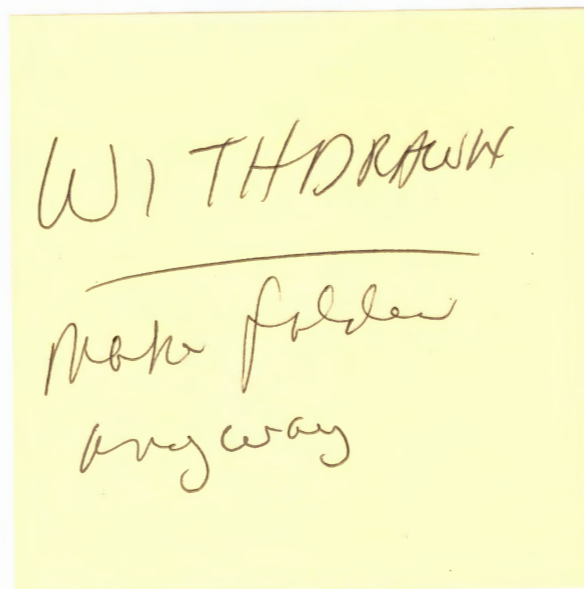 WITHDRAWN
Make folder
anyway